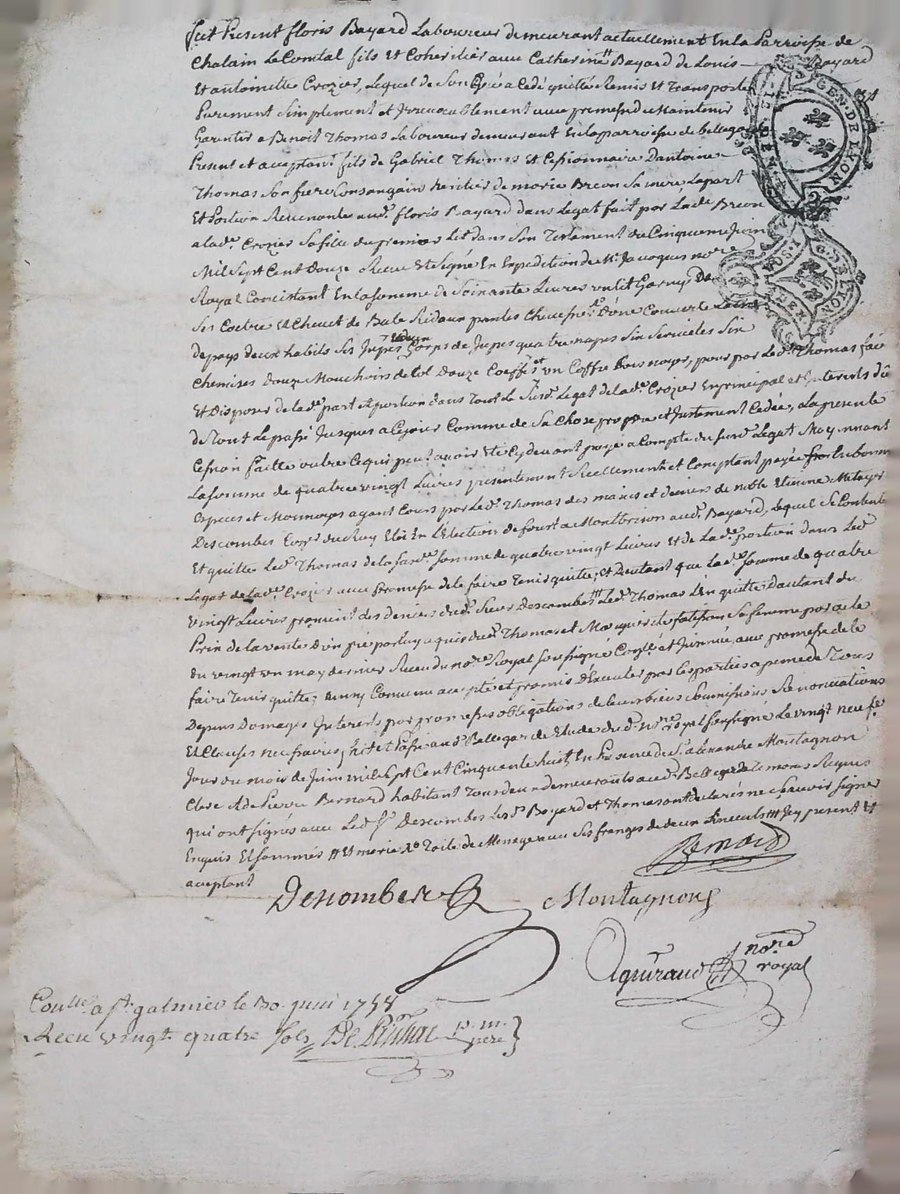 fut Present floris Bayard Laboureur demeurant actuellement En la Parroisse de
Chalain Le Comtal fils Et Coheritier avec Catherine Bayard de Louis Bayard
Et antoinette Crozier, Lequel de Son gré a Cedé quitté Remis et Transporté
Purement Simplement et Irrevocablement avec promesse de Maintenir
Garentir a Benoit Thomas Laboureur demeurant En la parroisse de bellegarde
Present et acceptant fils de Gabriel Thomas Et Cessionnaire Dantoine
Thomas Son frere Consanguin heritier de marie Breon Sa mere La part
Et Portion Revenante aud. floris Bayard dans Legat fait par Lad. Breon
a lad. Crozier Sa fille du premier Lit dans Son Testament du Cinquieme Juin
Mil Sept Cent Douze Receu et Signé En Expedition de Me Jacquet nore
Royal Concistant En la Somme de Soixante Livres un lit Garny De
Ses Coetre et Chevet de Bale Ridaux
de pays deux habits Ses Jupes Corps de Jupes quatre napes Six Serviettes Six
Chemises Douze Mouchoirs de Col Douze Coeffes et un Coffre bois noyer, pour par Led. Thomas faire
Et Disposer de lad. part et portion dans Tout Le Susd. Legat de lad. Crozier En principal et Interests du
de Tout Le passé Jusques a Ce jour Comme de Sa Chose propre et Justement Cedée, a La presente
Cession faitte outre Ce qui peut avoir été Cy devant payé a Compte du susd. Legat Moyennant
La Somme de quatre vingt Livres presentement Reellement et Comptant payée
Especes et Monnoyes ayant Cours par Led. Thomas des mains et deniers de noble Etienne
Descombes du Roy Elu En L'Election de forest a Montbrison aud. Bayard, Lequel Se Contente
Et quitte Led. Thomas de la susd. Somme de quatre vingt Livres Et de Lad. portion dans Led.
Legat de lad. Crozier avec Promesse de le faire Tenir quitte, et D'autant que Lad. Somme de quatre
Vingt Livres provient des deniers dud. Sieur Descombes Led. Thomas L'en quitte D'autant du
Prix de la vente D'un pré par luy acquis dud. Thomas et Sa femme par acte
du vingt un may dernier Receu du nore Royal Soussigné Conllé et Jnsinué, avec promesse de le
faire Tenir quitte, ainsy Convenu accepté et promis D'Executer par les parties a peine de Tous
Depens Domages Interets par promesses obligations de leurs biens Soumissions Renonciations
Et Clauses necessaires, fait et Passé aud. Bellegarde Etude dud. nre royal soussigné Le vingt neufe
Jour du mois de Juin mil Sept Cent Cinquante huit, En Presence de Sr alexandre Montagnon
Clerc Et de Pierre Bernard habitant Tous deux demeurants aud. Bellegarde Temoins Requis
qui ont Signés avec Led. Sr Descombes Les. Bayard et Thomas ont declarés ne Scavoir Signer
Enquis Et Sommés Toile de Menage avec Ses franges present et
acceptant
Bernard
Descombes
Montagnon
nore
royal
Conllé a St galmier le 30 juin 1758
Receu vingt quatre sols
GEN. DE LYON
G. D. LYON